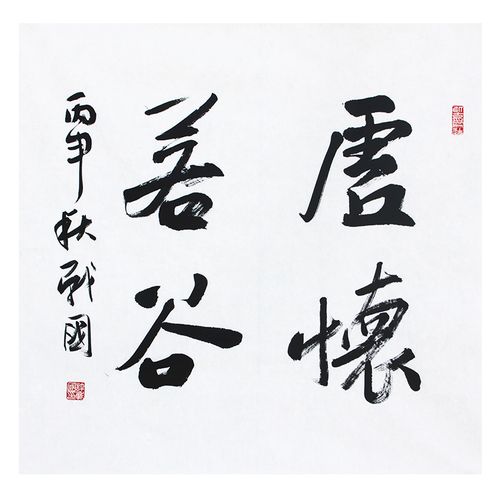 虚懷
若谷
丙申秋戰國